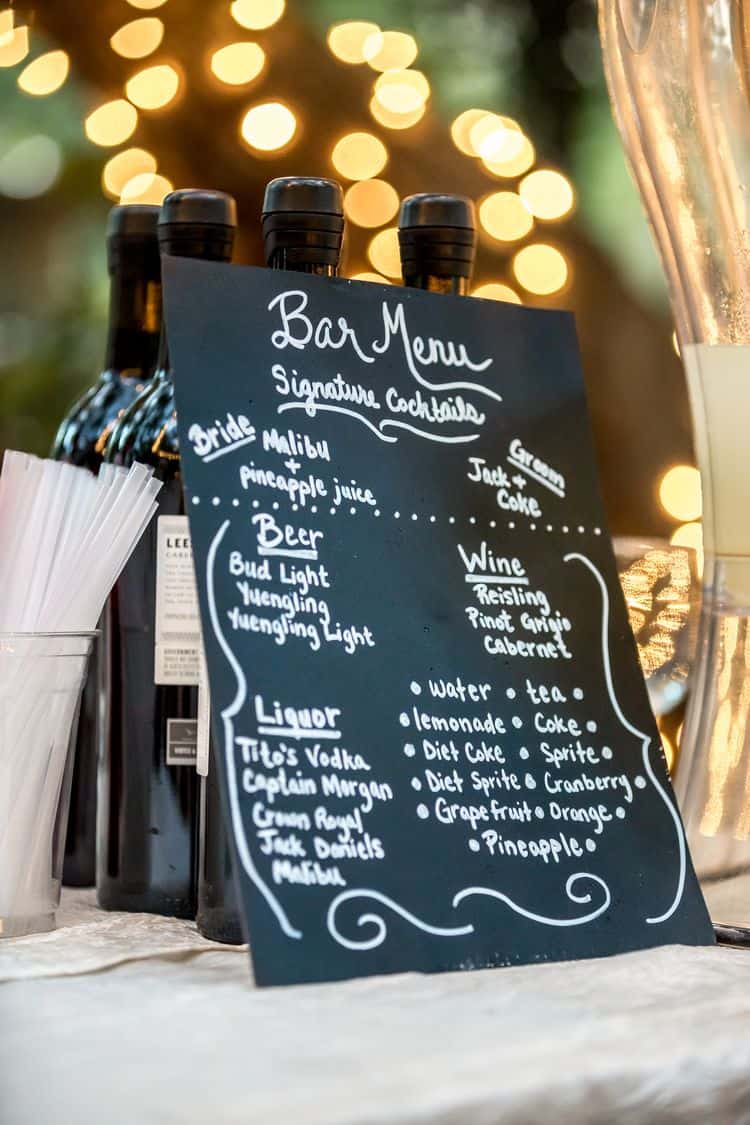 Bar Menu
Signature Cocktails
Bride
Malibu
+
pineapple juice
Groom
Jack +
Coke
Beer
Bud Light
Yuengling
Yuengling Light
Wine
Reisling
Pinot Grigio
Cabernet
Liquor
Tito's Vodka
Captain Morgan
Crown Royal
Jack Daniels
Malibu
• water • tea •
• lemonade • Coke •
• Diet Coke • Sprite •
• Diet Sprite • Cranberry •
• Grapefruit • Orange •
• Pineapple •
LEE
CABER
GOVERNMENT